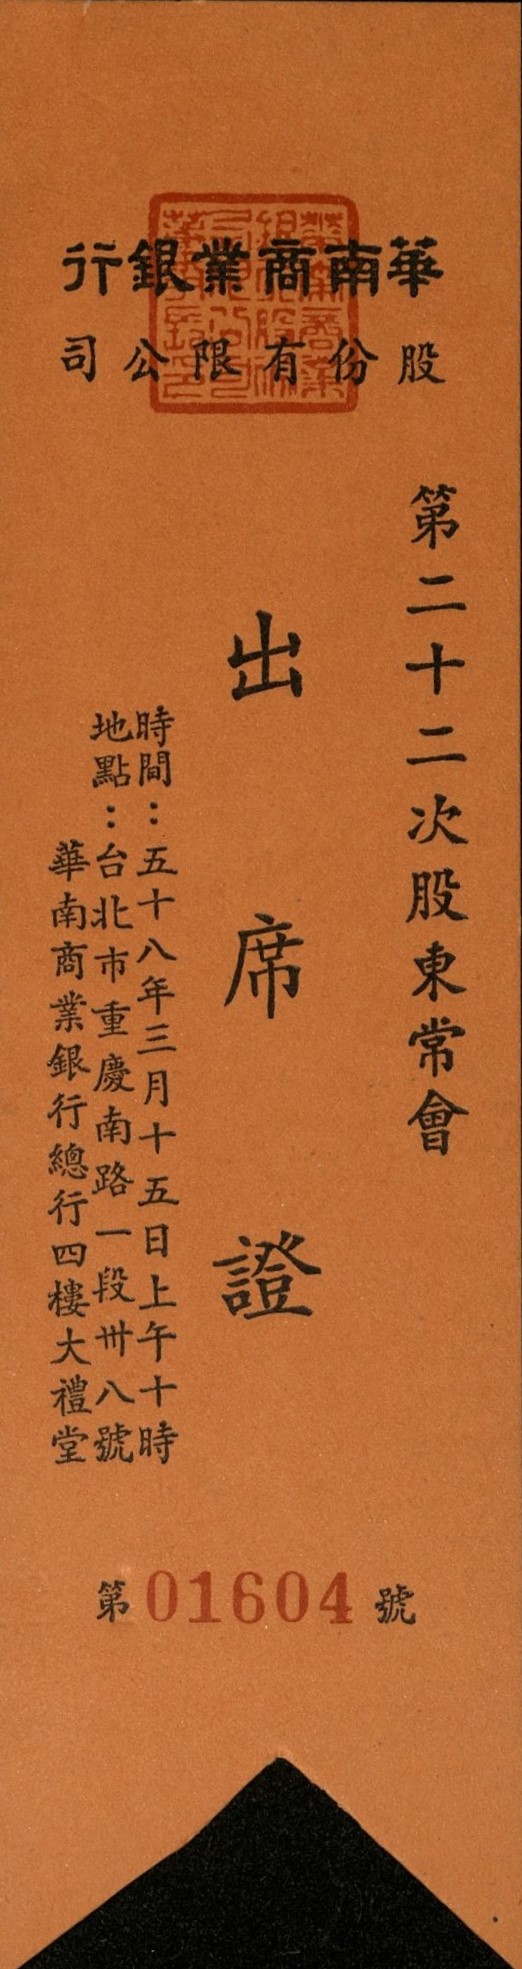 華南商業銀行
股份有限公司
第二十二次股東常會
出席證
時間：五十八年三月十五日上午十時
地點：台北市重慶南路一段卅八號
華南商業銀行總行四樓大禮堂
第01604號